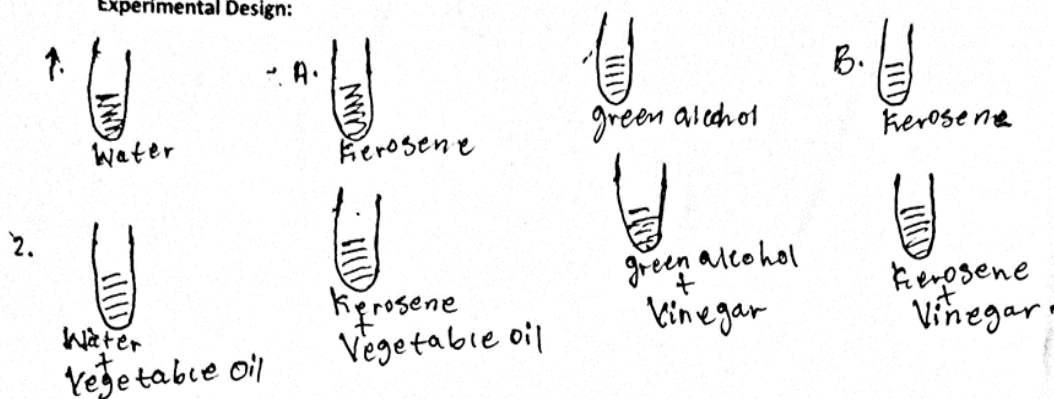 Experimental Design:
1.
Water
A.
Kerosene
green alcohol
B.
Kerosene
2.
Water
+
Vegetable oil
Kerosene
+
Vegetable oil
green alcohol
+
Vinegar
Kerosene
+
Vinegar.